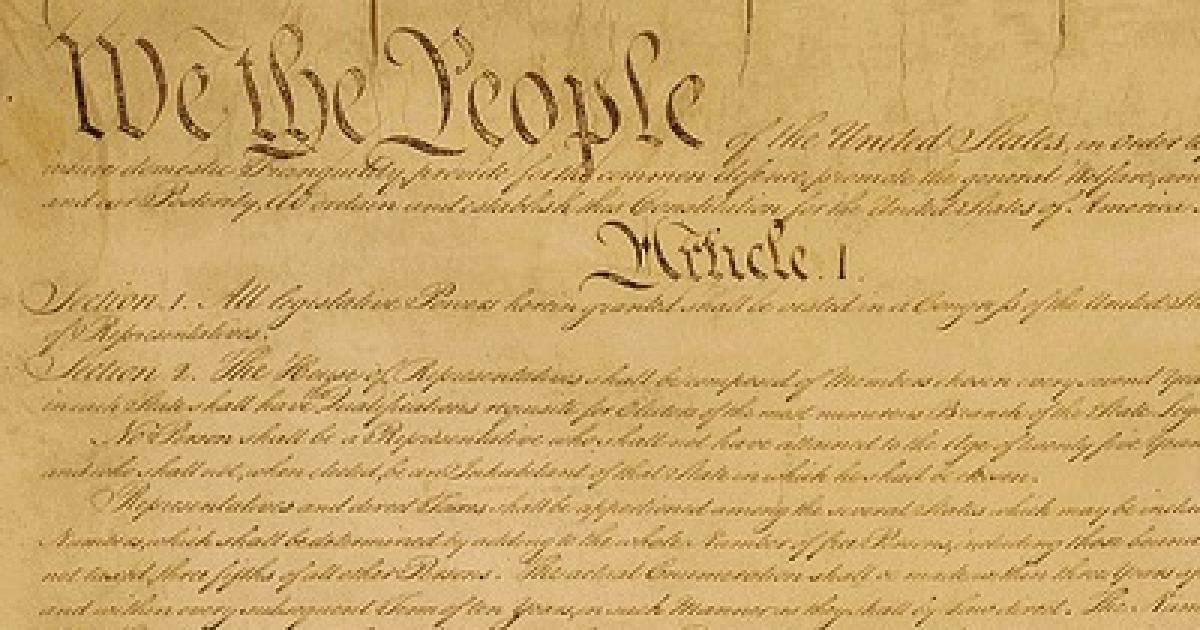 We the People of the United States, in Order
insure domestic Tranquility, provide for the common defence, promote the general Welfare, and
and our Posterity, do ordain and establish this Constitution for the United States of America.
Article. I.
Section. 1. All legislative Powers herein granted shall be vested in a Congress of the United
of Representatives.
Section. 2. The House of Representatives shall be composed of Members chosen every second
in each State shall have Qualifications requisite for Electors of the most numerous Branch of the State
No Person shall be a Representative who shall not have attained to the Age of twenty five Years
and who shall not, when elected, be an Inhabitant of that State in which he shall be chosen.
Representatives and direct Taxes shall be apportioned among the several States which may be
Numbers, which shall be determined by adding to the whole Number of free Persons, including those bound
not taxed, three fifths of all other Persons. The actual Enumeration shall be made within three Years
and within every subsequent Term of ten Years, in such Manner as they shall by Law direct. The